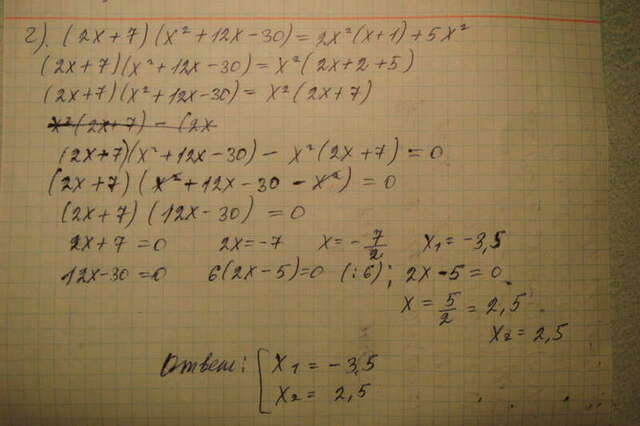 г). (2x+7)(x²+12x-30)=2x²(x+1)+5x²
(2x+7)(x²+12x-30)=x²(2x+2+5)
(2x+7)(x²+12x-30)=x²(2x+7)
x²(2x+7)-(2x
(2x+7)(x²+12x-30)-x²(2x+7)=0
(2x+7)(x²+12x-30-x²)=0
(2x+7)(12x-30)=0
2x+7=0 2x=-7 x=-7/2 x₁=-3,5
12x-30=0 6(2x-5)=0 (:6); 2x-5=0
x=5/2=2,5
x₂=2,5
Ответ: [x₁=-3,5
x₂=2,5